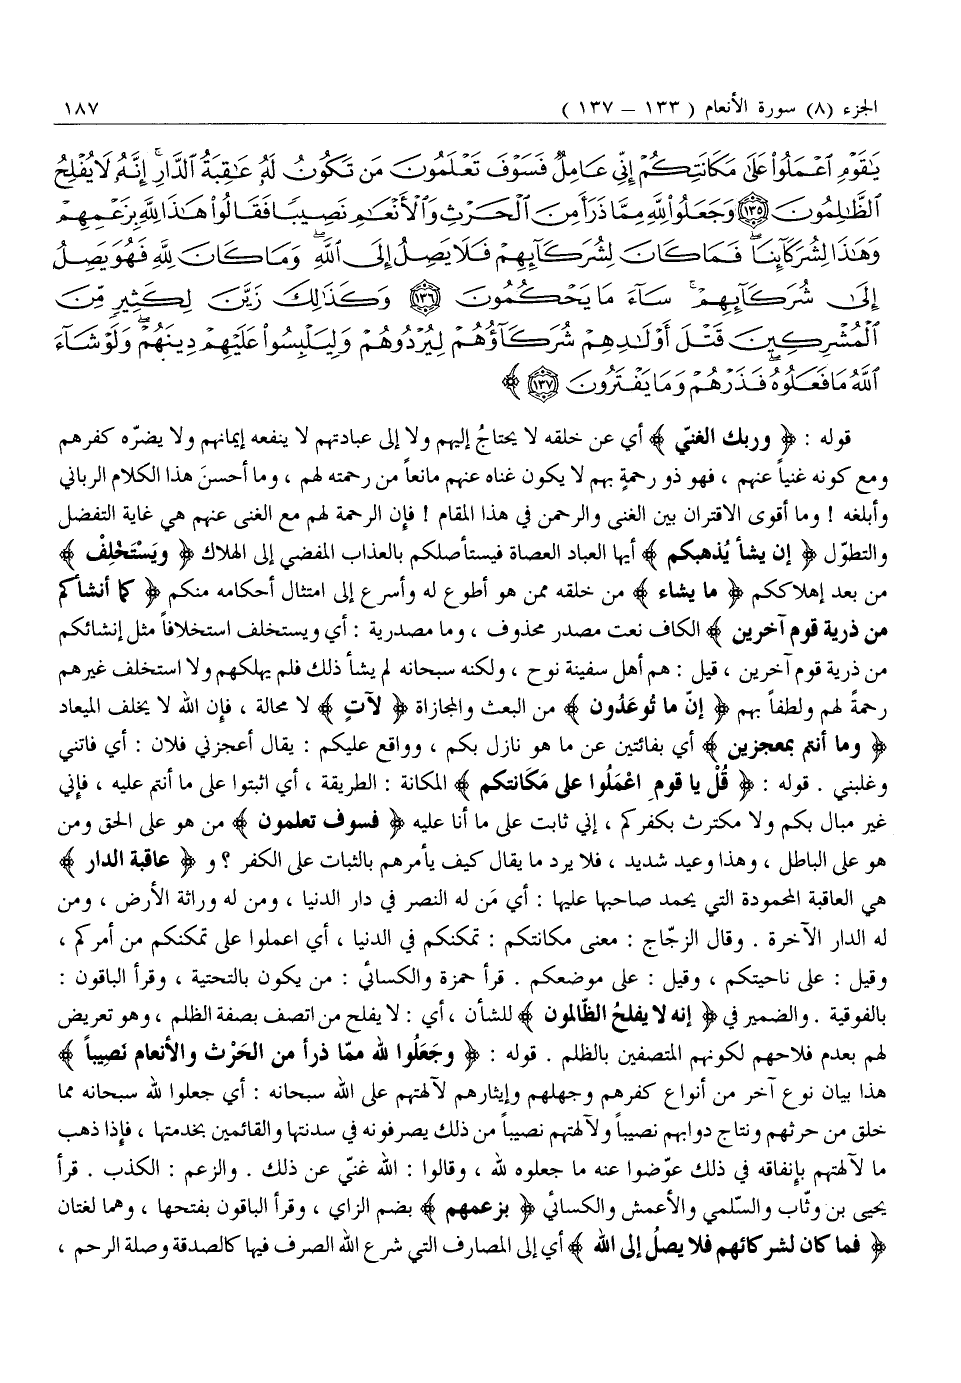 الجزء (٨) سورة الأنعام ( ١٣٣ – ١٣٧ ) ١٨٧
يَٰقَوْمِ ٱعْمَلُوا۟ عَلَىٰ مَكَانَتِكُمْ إِنِّى عَامِلٌ ۖ فَسَوْفَ تَعْلَمُونَ مَن تَكُونُ لَهُۥ عَٰقِبَةُ ٱلدَّارِ ۗ إِنَّهُۥ لَا يُفْلِحُ
ٱلظَّٰلِمُونَ ﴿١٣٥﴾ وَجَعَلُوا۟ لِلَّهِ مِمَّا ذَرَأَ مِنَ ٱلْحَرْثِ وَٱلْأَنْعَٰمِ نَصِيبًا فَقَالُوا۟ هَٰذَا لِلَّهِ بِزَعْمِهِمْ
وَهَٰذَا لِشُرَكَآئِنَا ۖ فَمَا كَانَ لِشُرَكَآئِهِمْ فَلَا يَصِلُ إِلَى ٱللَّهِ ۖ وَمَا كَانَ لِلَّهِ فَهُوَ يَصِلُ
إِلَىٰ شُرَكَآئِهِمْ ۗ سَآءَ مَا يَحْكُمُونَ ﴿١٣٦﴾ وَكَذَٰلِكَ زَيَّنَ لِكَثِيرٍ مِّنَ
ٱلْمُشْرِكِينَ قَتْلَ أَوْلَٰدِهِمْ شُرَكَآؤُهُمْ لِيُرْدُوهُمْ وَلِيَلْبِسُوا۟ عَلَيْهِمْ دِينَهُمْ ۖ وَلَوْ شَآءَ
ٱللَّهُ مَا فَعَلُوهُ ۖ فَذَرْهُمْ وَمَا يَفْتَرُونَ ﴿١٣٧﴾ ﴾
قوله : ﴿ وربك الغنيّ ﴾ أي عن خلقه لا يحتاجُ إليهم ولا إلى عبادتهم لا ينفعه إيمانهم ولا يضرّه كفرهم
ومع كونه غنياً عنهم ، فهو ذو رحمةٍ بهم لا يكون غناه عنهم مانعاً من رحمته لهم ، وما أحسنَ هذا الكلام الرباني
وأبلغه ! وما أقوى الاقتران بين الغنى والرحمن في هذا المقام ! فإن الرحمة لهم مع الغنى عنهم هي غاية التفضل
والتطوّل ﴿ إن يشأ يُذهبكم ﴾ أيها العباد العصاة فيستأصلكم بالعذاب المفضي إلى الهلاك ﴿ ويَسْتَخْلِفْ ﴾
من بعد إهلاككم ﴿ ما يشاء ﴾ من خلقه ممن هو أطوع له وأسرع إلى امتثال أحكامه منكم ﴿ كما أنشأكم
من ذرية قوم آخرين ﴾ الكاف نعت مصدر محذوف ، وما مصدرية : أي ويستخلف استخلافاً مثل إنشائكم
من ذرية قوم آخرين ، قيل : هم أهل سفينة نوح ، ولكنه سبحانه لم يشأ ذلك فلم يهلكهم ولا استخلف غيرهم
رحمةً لهم ولطفاً بهم ﴿ إنّ ما تُوعَدُون ﴾ من البعث والمجازاة ﴿ لآتٍ ﴾ لا محالة ، فإن الله لا يخلف الميعاد
﴿ وما أنتم بمعجزين ﴾ أي بفائتين عن ما هو نازل بكم ، وواقع عليكم : يقال أعجزني فلان : أي فاتني
وغلبني . قوله : ﴿ قُلْ يا قومِ اعْمَلُوا على مَكَانتكم ﴾ المكانة : الطريقة ، أي اثبتوا على ما أنتم عليه ، فإني
غير مبال بكم ولا مكترث بكفركم ، إني ثابت على ما أنا عليه ﴿ فسوف تعلمون ﴾ من هو على الحق ومن
هو على الباطل ، وهذا وعيد شديد ، فلا يرد ما يقال كيف يأمرهم بالثبات على الكفر ؟ و ﴿ عاقبة الدار ﴾
هي العاقبة المحمودة التي يحمد صاحبها عليها : أي مَن له النصر في دار الدنيا ، ومن له وراثة الأرض ، ومن
له الدار الآخرة . وقال الزجّاج : معنى مكانتكم : تمكنكم في الدنيا ، أي اعملوا على تمكنكم من أمركم ،
وقيل : على ناحيتكم ، وقيل : على موضعكم . قرأ حمزة والكسائي : من يكون بالتحتية ، وقرأ الباقون :
بالفوقية . والضمير في ﴿ إنه لا يفلحُ الظّالمون ﴾ للشأن ، أي : لا يفلح من اتصف بصفة الظلم ، وهو تعريض
لهم بعدم فلاحهم لكونهم المتصفين بالظلم . قوله : ﴿ وجَعَلُوا لله ممّا ذرأ من الحَرْث والأنعام نَصِيباً ﴾
هذا بيان نوع آخر من أنواع كفرهم وجهلهم وإيثارهم لآلهتهم على الله سبحانه : أي جعلوا لله سبحانه مما
خلق من حرثهم ونتاج دوابهم نصيباً ولآلهتهم نصيباً من ذلك يصرفونه في سدنتها والقائمين بخدمتها ، فإذا ذهب
ما لآلهتهم بإنفاقه في ذلك عوّضوا عنه ما جعلوه لله ، وقالوا : الله غنّي عن ذلك . والزعم : الكذب . قرأ
يحيى بن وثّاب والسّلمي والأعمش والكسائي ﴿ بزعمهم ﴾ بضم الزاي ، وقرأ الباقون بفتحها ، وهما لغتان
﴿ فما كان لشركائهم فلا يصلُ إلى الله ﴾ أي إلى المصارف التي شرع الله الصرف فيها كالصدقة وصلة الرحم ،